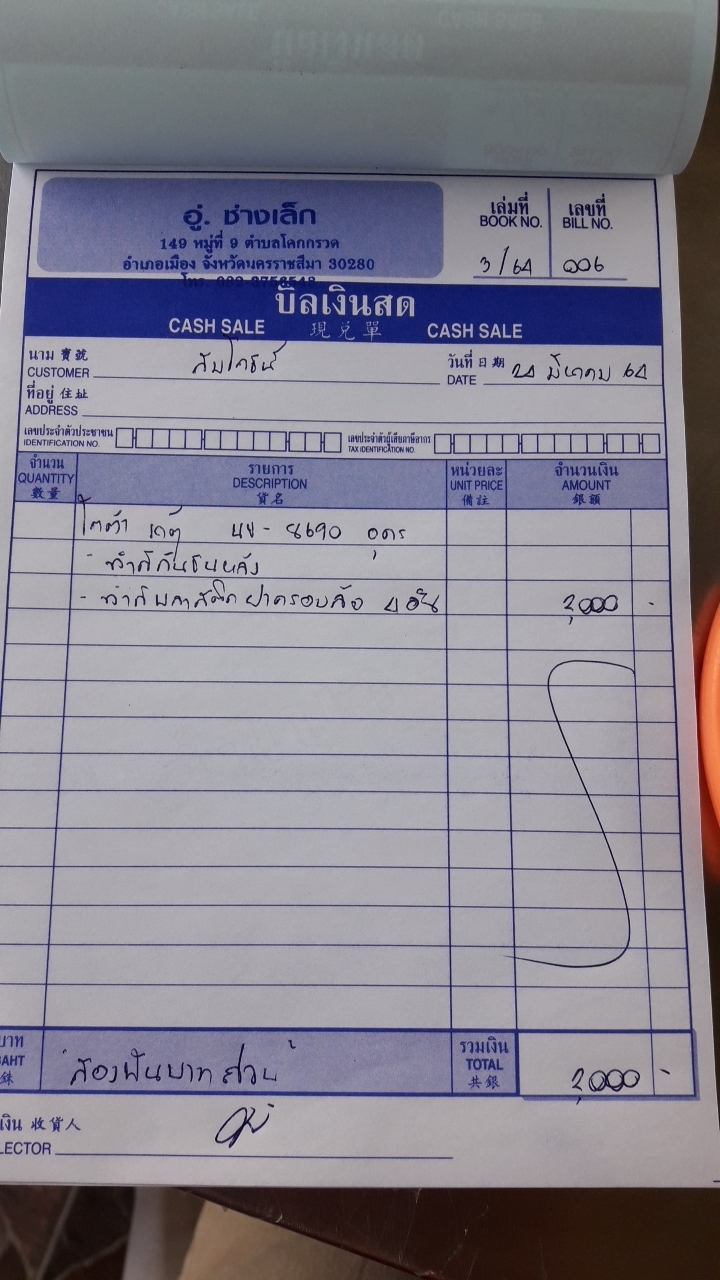 อู่. ช่างเล็ก
149 หมู่ที่ 9 ตำบลโคกกรวด
อำเภอเมือง จังหวัดนครราชสีมา 30280
โทร.
เล่มที่ เลขที่
BOOK NO. BILL NO.
3/64 006
บิลเงินสด
CASH SALE 現兌單 CASH SALE
นาม 寶號
CUSTOMER
วันที่ 日期
DATE 24 มีนาคม 64
ที่อยู่ 住址
ADDRESS
เลขประจำตัวประชาชน เลขประจำตัวผู้เสียภาษีอากร
IDENTIFICATION NO. TAX IDENTIFICATION NO.
จำนวน รายการ หน่วยละ จำนวนเงิน
QUANTITY DESCRIPTION UNIT PRICE AMOUNT
數量 貨名 備註 銀額
8690 อุดร
- ทำสีกันชนหลัง
- ทำสีพลาสติกฝาครอบล้อ 4 อัน 2,000 -
บาท รวมเงิน
BAHT "สองพันบาทส่วน" TOTAL 2,000 -
銖 共銀
เงิน 收貨人
LECTOR